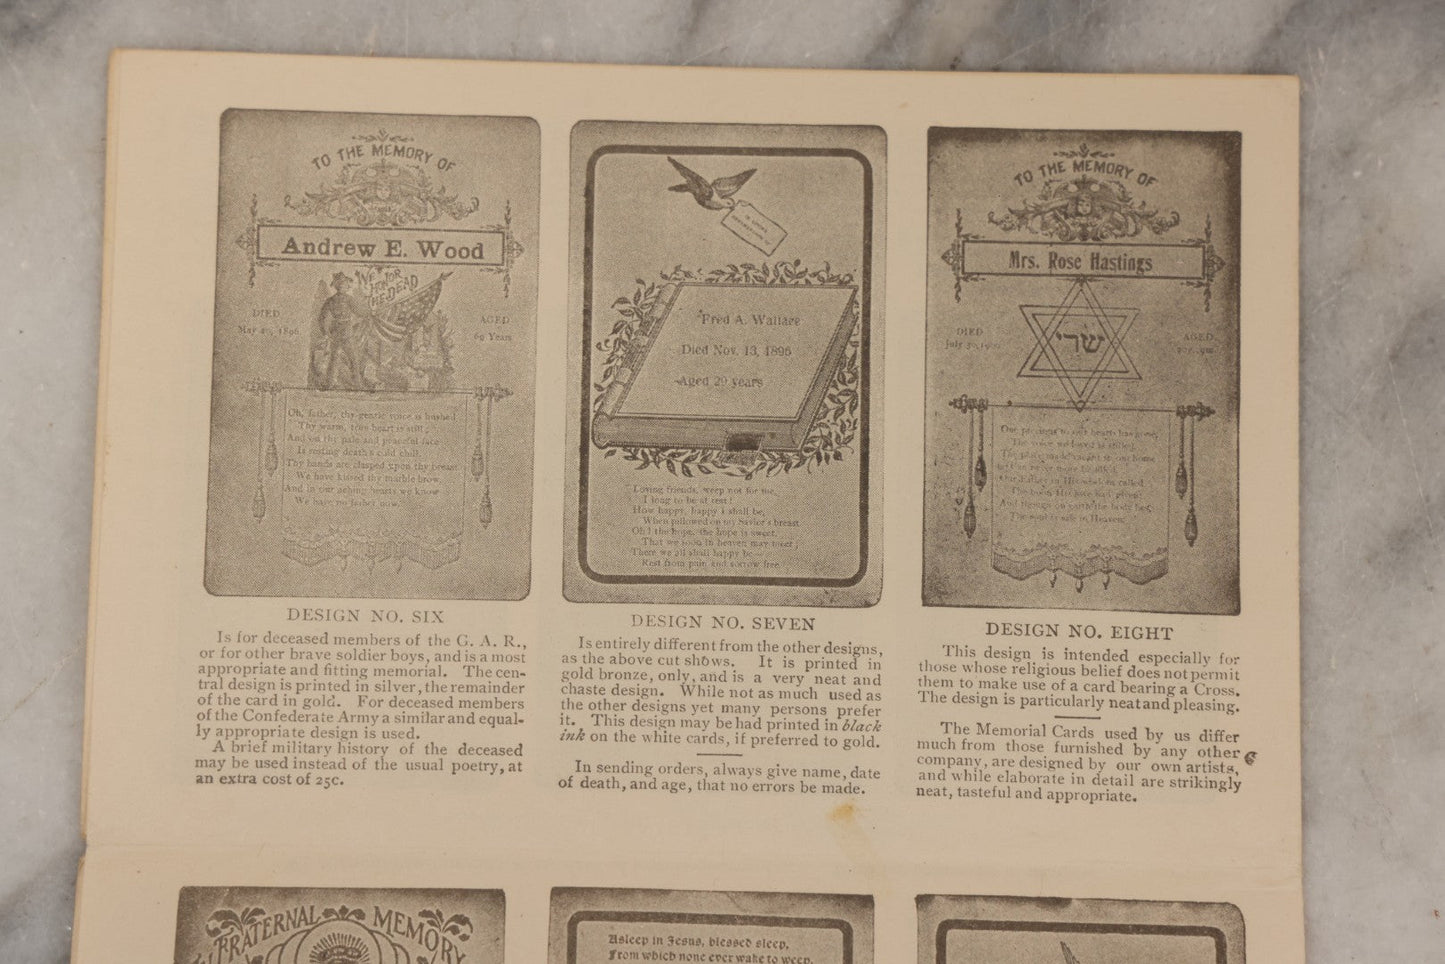 TO THE MEMORY OF
Andrew E. Wood
WE HONOR
THE DEAD
DIED
May 20, 1896
AGED
69 Years
Oh, father, thy gentle voice is hushed
Thy warm, true heart is still;
And on thy pale and peaceful face
Is resting death's cold chill.
Thy hands are clasped upon thy breast
We have kissed thy marble brow,
And in our aching hearts we know
We have no father now.
DESIGN NO. SIX
Is for deceased members of the G. A. R.,
or for other brave soldier boys, and is a most
appropriate and fitting memorial. The cen-
tral design is printed in silver, the remainder
of the card in gold. For deceased members
of the Confederate Army a similar and equal-
ly appropriate design is used.
A brief military history of the deceased
may be used instead of the usual poetry, at
an extra cost of 25c.
Fred A. Wallace
Died Nov. 13, 1895
Aged 29 years
Loving friends, weep not for me,
I long to be at rest!
How happy, happy I shall be,
When pillowed on my Savior's breast.
Oh! the hope, the hope is sweet,
That we soon in heaven may meet;
There we all shall happy be—
Rest from pain and sorrow free.
DESIGN NO. SEVEN
Is entirely different from the other designs,
as the above cut shows. It is printed in
gold bronze, only, and is a very neat and
chaste design. While not as much used as
the other designs yet many persons prefer
it. This design may be had printed in black
ink on the white cards, if preferred to gold.
In sending orders, always give name, date
of death, and age, that no errors be made.
TO THE MEMORY OF
Mrs. Rose Hastings
שרי
DIED
July
AGED
Our precious to our hearts has gone,
The voice we loved is stilled,
The place made vacant in our home
Can never more be filled.
Our Father in His wisdom called
The boon His love had given;
And though on earth the body lies,
The soul is safe in Heaven.
DESIGN NO. EIGHT
This design is intended especially for
those whose religious belief does not permit
them to make use of a card bearing a Cross.
The design is particularly neat and pleasing.
The Memorial Cards used by us differ
much from those furnished by any other
company, are designed by our own artists,
and while elaborate in detail are strikingly
neat, tasteful and appropriate.
FRATERNAL MEMORY
Asleep in Jesus, blessed sleep,
From which none ever wake to weep.